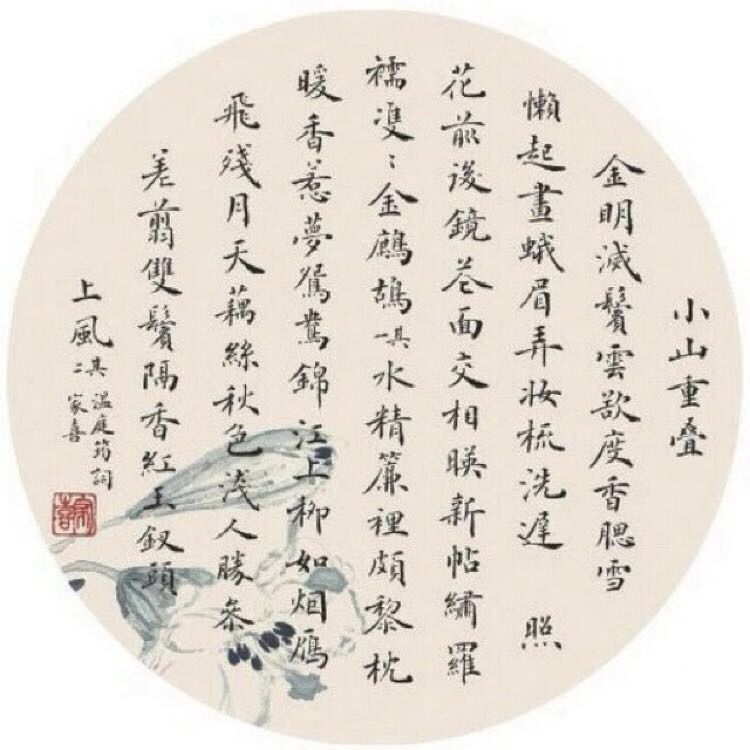 小山重叠
金明滅鬢雲欲度香腮雪
懶起畫蛾眉弄妝梳洗遲 照
花前後鏡花面交相暎新帖繡羅
襦雙〻金鷓鴣 其一 水精簾裡頗黎枕
暖香惹夢鴛鴦錦江上柳如烟鴈
飛殘月天藕絲秋色淺人勝參
差翦雙鬢隔香紅玉釵頭
上風 其二 溫庭筠詞
家喜
家喜